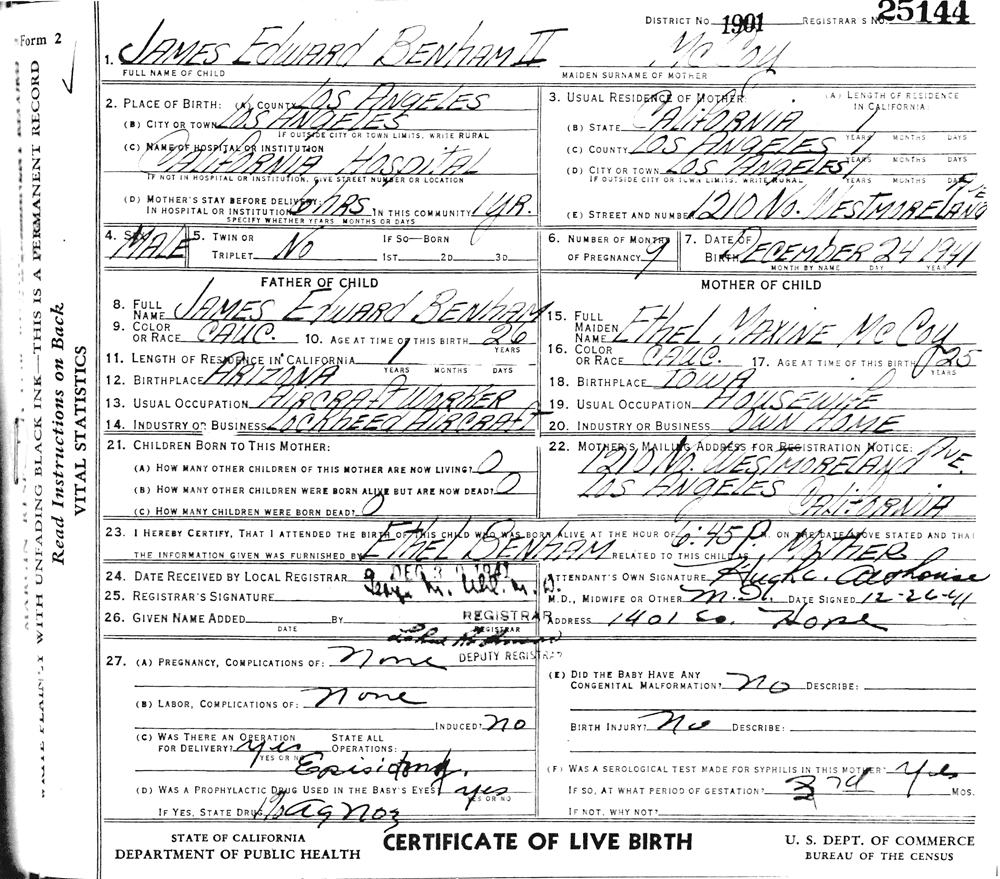 DISTRICT NO. 1901 REGISTRAR'S NO. 25144
Form 2
1. JAMES EDWARD BENHAM II McCoy
FULL NAME OF CHILD MAIDEN SURNAME OF MOTHER
2. PLACE OF BIRTH: (A) COUNTY LOS ANGELES
(B) CITY OR TOWN LOS ANGELES
IF OUTSIDE CITY OR TOWN LIMITS, WRITE RURAL
(C) NAME OF HOSPITAL OR INSTITUTION
CALIFORNIA HOSPITAL
IF NOT IN HOSPITAL OR INSTITUTION, GIVE STREET NUMBER OR LOCATION
(D) MOTHER'S STAY BEFORE DELIVERY:
IN HOSPITAL OR INSTITUTION HRS IN THIS COMMUNITY 1 YR.
SPECIFY WHETHER YEARS MONTHS OR DAYS
3. USUAL RESIDENCE OF MOTHER: (A) LENGTH OF RESIDENCE
IN CALIFORNIA:
(B) STATE CALIFORNIA 1 YEARS MONTHS DAYS
(C) COUNTY LOS ANGELES 1 YEARS MONTHS DAYS
(D) CITY OR TOWN LOS ANGELES 1 YEARS MONTHS DAYS
IF OUTSIDE CITY OR TOWN LIMITS, WRITE RURAL
(E) STREET AND NUMBER 1210 NO. WESTMORELAND AVE
4. SEX MALE 5. TWIN OR TRIPLET No IF SO—BORN 1ST 2D 3D
6. NUMBER OF MONTHS OF PREGNANCY 9 7. DATE OF BIRTH DECEMBER 24 1941
MONTH BY NAME DAY YEAR
FATHER OF CHILD
8. FULL NAME JAMES EDWARD BENHAM
9. COLOR OR RACE CAUC. 10. AGE AT TIME OF THIS BIRTH 26 YEARS
11. LENGTH OF RESIDENCE IN CALIFORNIA 1 YEARS MONTHS DAYS
12. BIRTHPLACE ARIZONA
13. USUAL OCCUPATION AIRCRAFT WORKER
14. INDUSTRY OR BUSINESS LOCKHEED AIRCRAFT
MOTHER OF CHILD
15. FULL MAIDEN NAME ETHEL MAXINE McCOY
16. COLOR OR RACE CAUC. 17. AGE AT TIME OF THIS BIRTH 25 YEARS
18. BIRTHPLACE IOWA
19. USUAL OCCUPATION HOUSEWIFE
20. INDUSTRY OR BUSINESS OWN HOME
21. CHILDREN BORN TO THIS MOTHER:
(A) HOW MANY OTHER CHILDREN OF THIS MOTHER ARE NOW LIVING? 0
(B) HOW MANY OTHER CHILDREN WERE BORN ALIVE BUT ARE NOW DEAD? 0
(C) HOW MANY CHILDREN WERE BORN DEAD? 0
22. MOTHER'S MAILING ADDRESS FOR REGISTRATION NOTICE:
1210 NO. WESTMORELAND AVE.
LOS ANGELES
CALIFORNIA
23. I HEREBY CERTIFY, THAT I ATTENDED THE BIRTH OF THIS CHILD WHO WAS BORN ALIVE AT THE HOUR OF 6:45 P. M. ON THE DATE ABOVE STATED AND THAT
THE INFORMATION GIVEN WAS FURNISHED BY ETHEL BENHAM RELATED TO THIS CHILD AS MOTHER
24. DATE RECEIVED BY LOCAL REGISTRAR DEC 1941
25. REGISTRAR'S SIGNATURE
REGISTRAR
26. GIVEN NAME ADDED BY
DATE REGISTRAR
DEPUTY REGISTRAR
ATTENDANT'S OWN SIGNATURE Hugh C.
M.D., MIDWIFE OR OTHER M.D. DATE SIGNED 12-26-41
ADDRESS 1401 So. Hope
27. (A) PREGNANCY, COMPLICATIONS OF: None
(B) LABOR, COMPLICATIONS OF: None
INDUCED? No
(C) WAS THERE AN OPERATION FOR DELIVERY? yes STATE ALL OPERATIONS:
YES OR NO
(D) WAS A PROPHYLACTIC DRUG USED IN THE BABY'S EYES? yes
YES OR NO
IF YES, STATE DRUG 1% AgNO3
(E) DID THE BABY HAVE ANY
CONGENITAL MALFORMATION? No DESCRIBE:
BIRTH INJURY? No DESCRIBE:
(F) WAS A SEROLOGICAL TEST MADE FOR SYPHILIS IN THIS MOTHER? Yes
IF SO, AT WHAT PERIOD OF GESTATION? 3rd MOS.
IF NOT, WHY NOT?
STATE OF CALIFORNIA
DEPARTMENT OF PUBLIC HEALTH
CERTIFICATE OF LIVE BIRTH
U. S. DEPT. OF COMMERCE
BUREAU OF THE CENSUS
WRITE PLAINLY WITH UNFADING BLACK INK—THIS IS A PERMANENT RECORD
Read Instructions on Back
VITAL STATISTICS